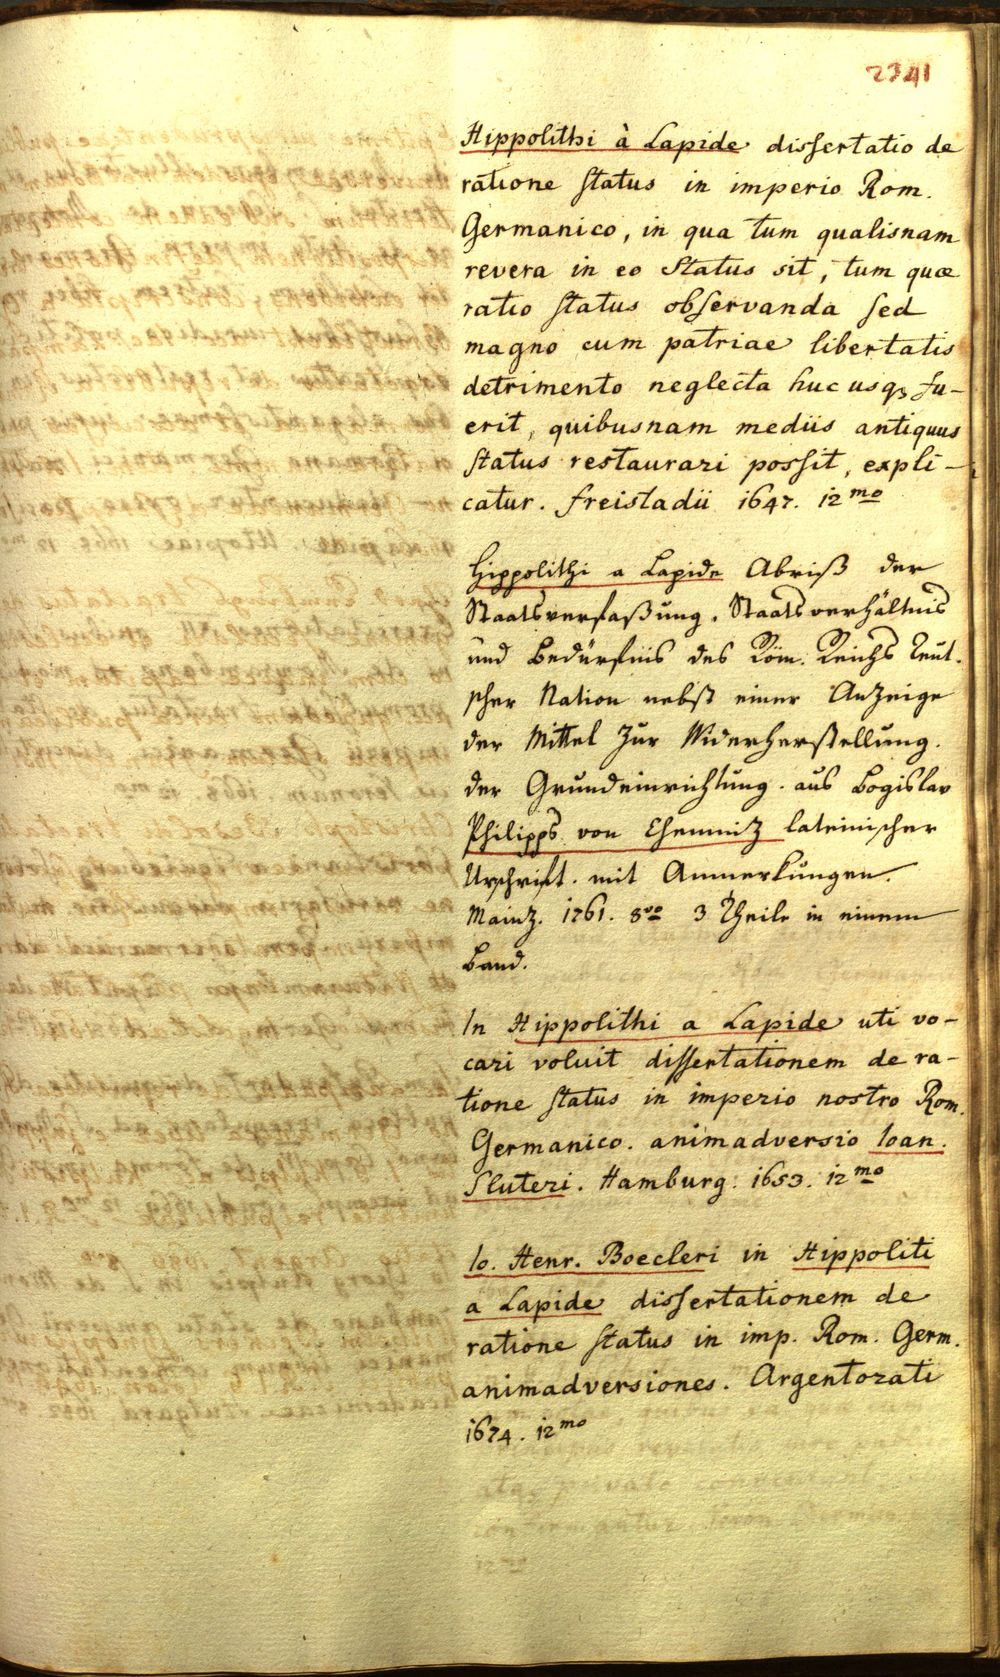 2341
Hippolithi à Lapide dissertatio de
ratione status in imperio Rom.
Germanico, in qua tum qualisnam
revera in eo status sit, tum quæ
ratio status observanda sed
magno cum patriae libertatis
detrimento neglecta huc usq₃ fu-
erit, quibusnam mediis antiquus
status restaurari possit, expli-
catur. Freistadii 1647. 12mo
Hippolithi a Lapide Abriß der
Staatsverfaßung, Staatsverhältnis
und Bedürfnis des Röm. Reichs Teut-
scher Nation nebst einer Anzeige
der Mittel zur Widerherstellung
der Grundeinrichtung. aus Bogislav
Philipps von Chemnitz lateinischer
Urschrift. mit Anmerkungen.
Mainz. 1761. 8vo 3 Theile in einem
Band.
In Hippolithi a Lapide uti vo-
cari voluit dissertationem de ra-
tione status in imperio nostro Rom.
Germanico. animadversio Ioan.
Sluteri. Hamburg. 1653. 12mo
Io. Henr. Boecleri in Hippoliti
a Lapide dissertationem de
ratione status in imp. Rom. Germ.
animadversiones. Argentorati
1674. 12mo